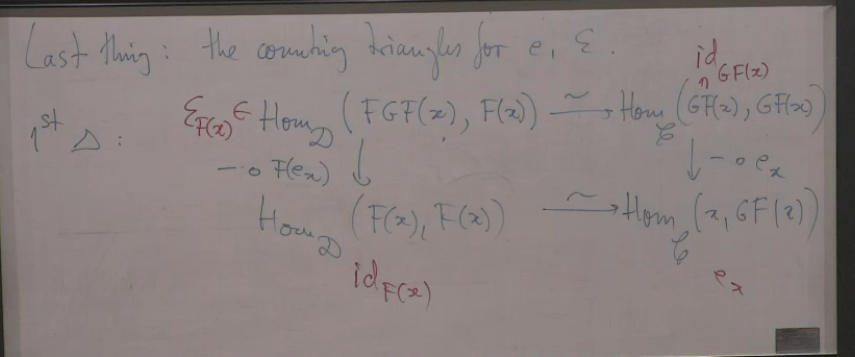 Last thing: the counting triangles for e, ε.
id_{GF(x)}
1st Δ: ε_{F(x)} ∈ Hom_D (FGF(x), F(x)) ⥲ Hom_C (GF(x), GF(x))
- ∘ F(e_x) ↓ ↓ - ∘ e_x
Hom_D (F(x), F(x)) ⥲ Hom_C (x, GF(x))
id_{F(x)} e_x